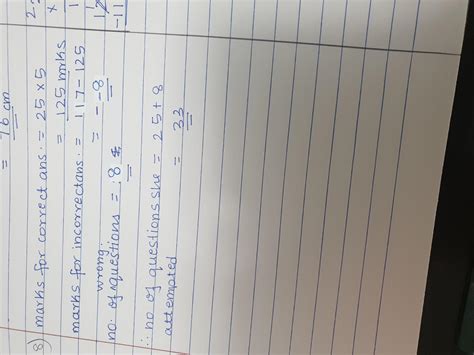 = 76 cm
8) marks for correct ans. = 25 × 5
= 125 mrks
marks for incorrect ans. = 117 - 125
= - -8
wrong
no. of questions = 8
∴ no of questions she = 25 + 8
attempted = 33